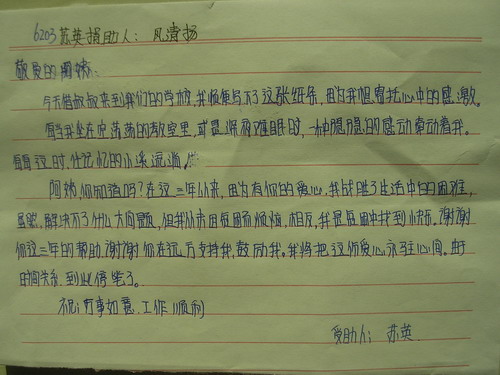 6203 苏英捐助人：风清扬
敬爱的阿姨：
今天借叔叔来到我们的学校，我顺便写下了这张纸条，因为我想寄托心中的感激。
每当我坐在空荡荡的教室里，或是深夜难眠时，一种隐隐的感动牵动着我。
每每这时，任记忆的小溪流淌，
阿姨，你知道吗？在这三年以来，因为有你的爱心，我战胜了生活中的困难，
虽说，解决不了什么大问题，但我从未因困而烦恼，相反，我是困中找到小乐。谢谢
你这三年的帮助，谢谢你在远方支持我，鼓励我。我将把这份爱心永驻心间。由于
时间关系，到此停笔了。
祝：万事如意，工作顺利
受助人：苏英